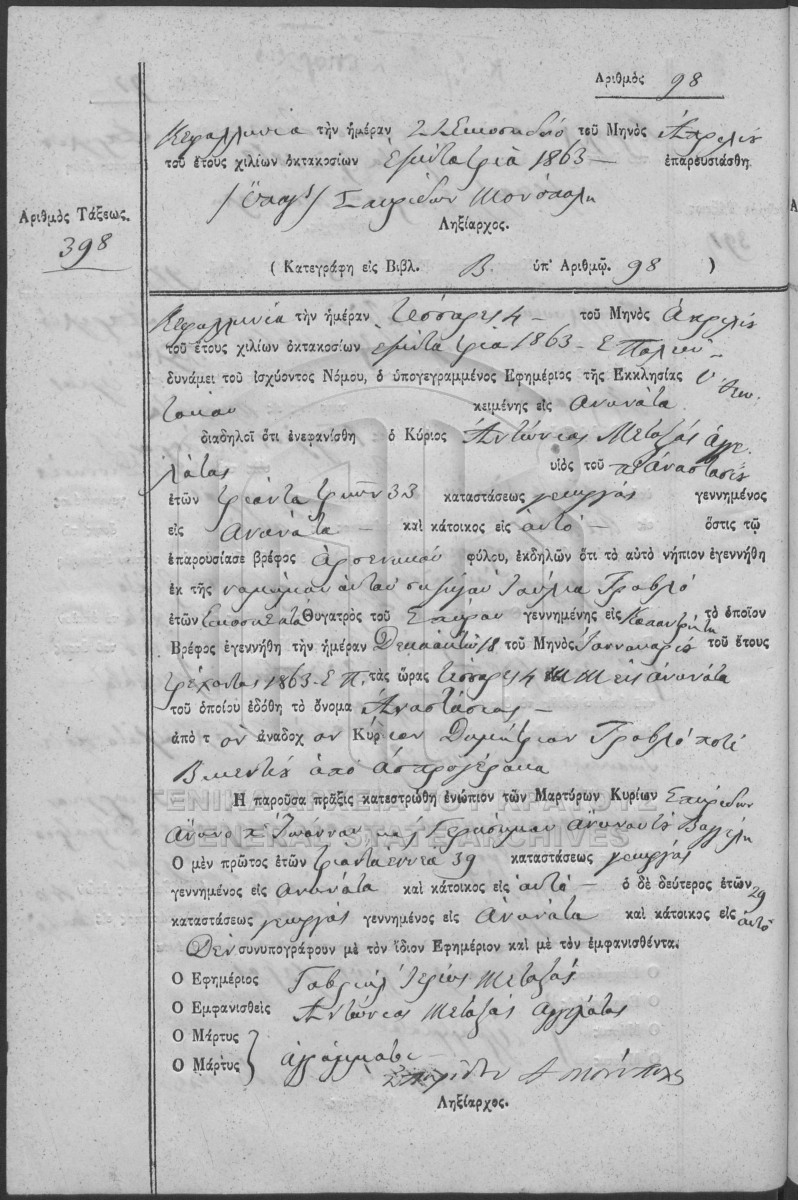 Ἀριθμὸς 98
Κεφαλληνία τὴν ἡμέραν 22 Εικοσιδύο τοῦ Μηνὸς Ἀπριλίου
τοῦ ἔτους χιλίων ὀκτακοσίων ἑξῆντα τρία 1863 — ἐπαρουσιάσθη
Σπυρίδων
Ληξίαρχος.
Ἀριθμὸς Τάξεως.
398
( Κατεγράφη εἰς Βιβλ. Β. ὑπ' Ἀριθμῷ. 98 )
Κεφαλληνία τὴν ἡμέραν τέσσαρες 4 — τοῦ Μηνὸς Ἀπριλίου
τοῦ ἔτους χιλίων ὀκτακοσίων ἑξῆντα τρία 1863 — Ε Παλαιόν —
δυνάμει τοῦ ἰσχύοντος Νόμου, ὁ ὑπογεγραμμένος Ἐφημέριος τῆς Ἐκκλησίας Θεο
τόκου κειμένης εἰς Ανωνάτα
διαδηλοῖ ὅτι ἐνεφανίσθη ὁ Κύριος Ἀντώνιος Μεταξάς Αγγε
λάτος υἱὸς τοῦ π Αναστασίου
ἐτῶν τριάντα τριῶν 33 καταστάσεως γεωργός γεννημένος
εἰς Ανωνάτα — καὶ κάτοικος εἰς αυτό — ὅστις τῷ
ἐπαρουσίασε βρέφος Αρσενικού φύλου, ἐκδηλῶν ὅτι τὸ αὐτὸ νήπιον ἐγεννήθη
ἐκ τῆς νομίμου αυτού συζύγου Ιουλία Τραβλό
ἐτῶν Εικοσιεπτά Θυγατρὸς τοῦ Σπύρου γεννημένης εἰς τὸ ὁποῖον
Βρέφος ἐγεννήθη τὴν ἡμέραν Δεκαοκτώ 18 τοῦ Μηνὸς Ιαννουαρίου τοῦ ἔτους
τρέχοντος 1863 — Ε Π. τὰς ὥρας τέσσαρες 4 ΜΜ εις Ανωνάτα
τοῦ ὁποίου ἐδόθη τὸ ὄνομα Αναστάσιος —
ἀπὸ τ ὸν ἀναδοχ ον Κύριον Δημήτριον Τραβλό ποτέ
Βικεντίου από Ασπρογέρακα
Ἡ παροῦσα πρᾶξις κατεστρώθη ἐνώπιον τῶν Μαρτύρων Κυρίων Σπυρίδων
π Ιωάννου και Γεράσιμου Βαγγέλη
Ὁ μὲν πρῶτος ἐτῶν τριάντα εννέα 39 καταστάσεως γεωργός
γεννημένος εἰς Ανωνάτα καὶ κάτοικος εἰς αυτό — ὁ δὲ δεύτερος ἐτῶν 29
καταστάσεως γεωργός γεννημένος εἰς Ανωνάτα καὶ κάτοικος εἰς αυτό
Δεν συνυπογράφουν μὲ τὸν ἴδιον Ἐφημέριον καὶ μὲ τὸν ἐμφανισθέντα.
Ὁ Ἐφημέριος Γαβριήλ Ιερεύς Μεταξάς
Ὁ Ἐμφανισθεὶς Αντώνιος Μεταξάς Αγγελάτος
Ὁ Μάρτυς
Ὁ Μάρτυς αγράμματοι —
Σπυρίδων
Ληξίαρχος.
ΓΕΝΙΚΑ ΑΡΧΕΙΑ ΤΟΥ ΚΡΑΤΟΥΣ
GENERAL STATE ARCHIVES